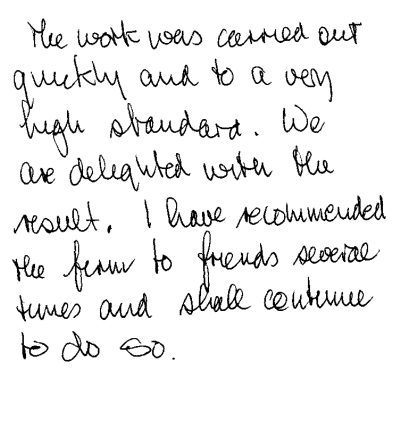 The work was carried out
quickly and to a very
high standard. We
are delighted with the
result. I have recommended
the firm to friends several
times and shall continue
to do so.